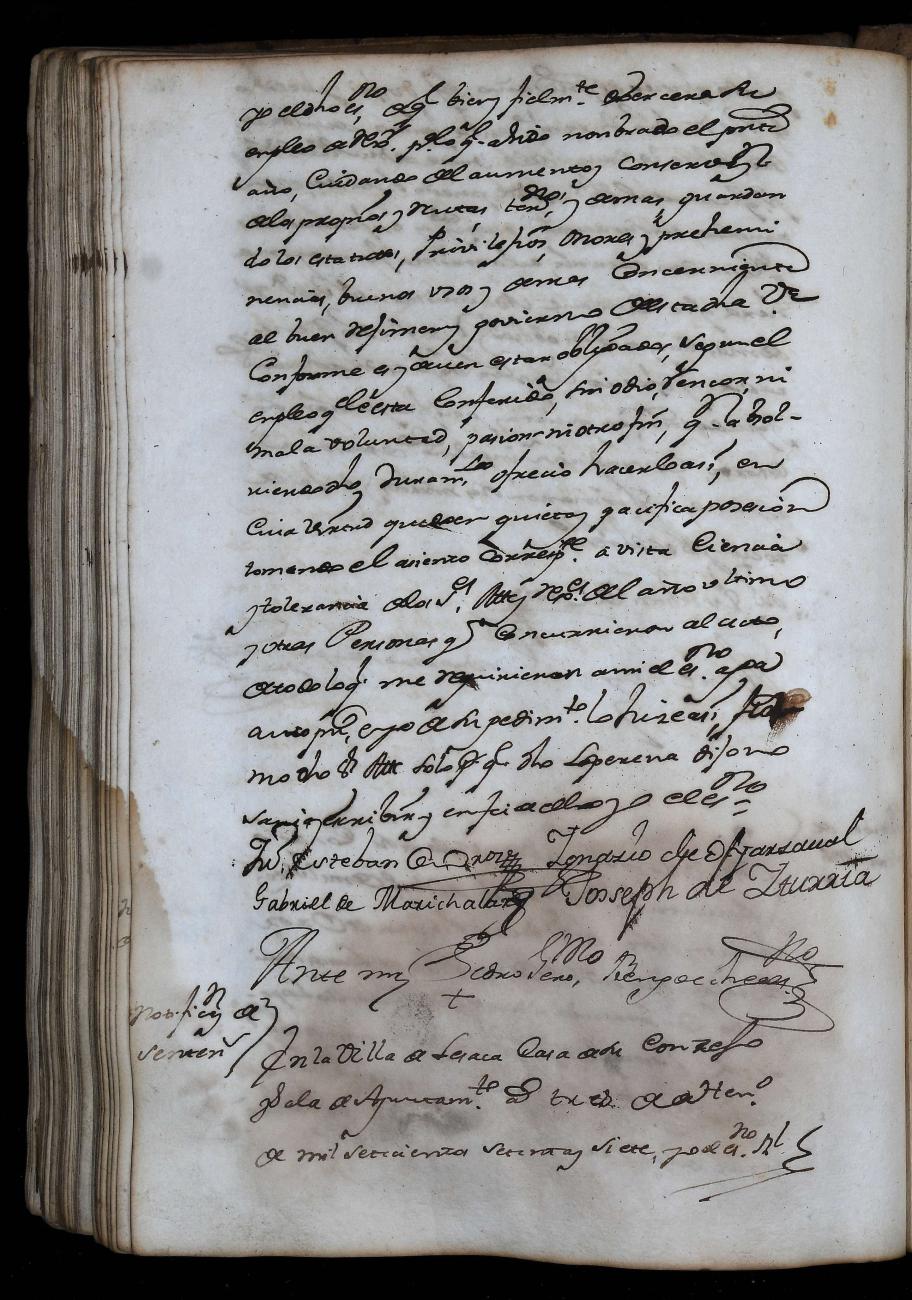 yo el dho es.no de q.e bien y fielm.te exercera su
empleo de Rex.or p.a lo q. ha sido nombrado el pnte
año, Cuidando del aumento y conservaz.n
de los propios y Rentas, terr.nos y demas, guardan
do los estatutos, Privilejios, onores y prehemi
nencias, buenos usos y demas Concerniente
al buen Rejimen y govierno de esta dha V.a
Conforme es y deven estar obligados, segun el
empleo q.e le esta Conferido, sin odio, rencor, ni
mala voluntad, pasion ni otro fin, q.
viendo dho Juram.to ofrecio hacerlo asi, en
Cuia virtud quedo en quieta y pacifica posesion
tomando el asiento Corresp.te a vista Ciencia
y tolerancia de los S.res Alc.e y Rex.res del año ultimo
y otras Personas q.e Concurrieron al acto,
de todo lo q.e me requirieron a mi el es.no
auto pu.co, e yo de su pedim.to lo hize asi, fir
mo dho S.r Alc.e solo p.r q.e dho Loperena dijo no
savia escribir y en fee de ello yo el es.no
Ju. Esteban Ignazio de Ygarzaval
Gabriel de Marichalar Josseph de Yturria
Ante my Pedro Reny de
Notificaz.n de
senten.s
En la Villa de Lesaca Casa de su Conzejo
y Sala de Ayuntam.to a tres de de En.o
de mil setecientos setenta y siete, yo el es.no R.l